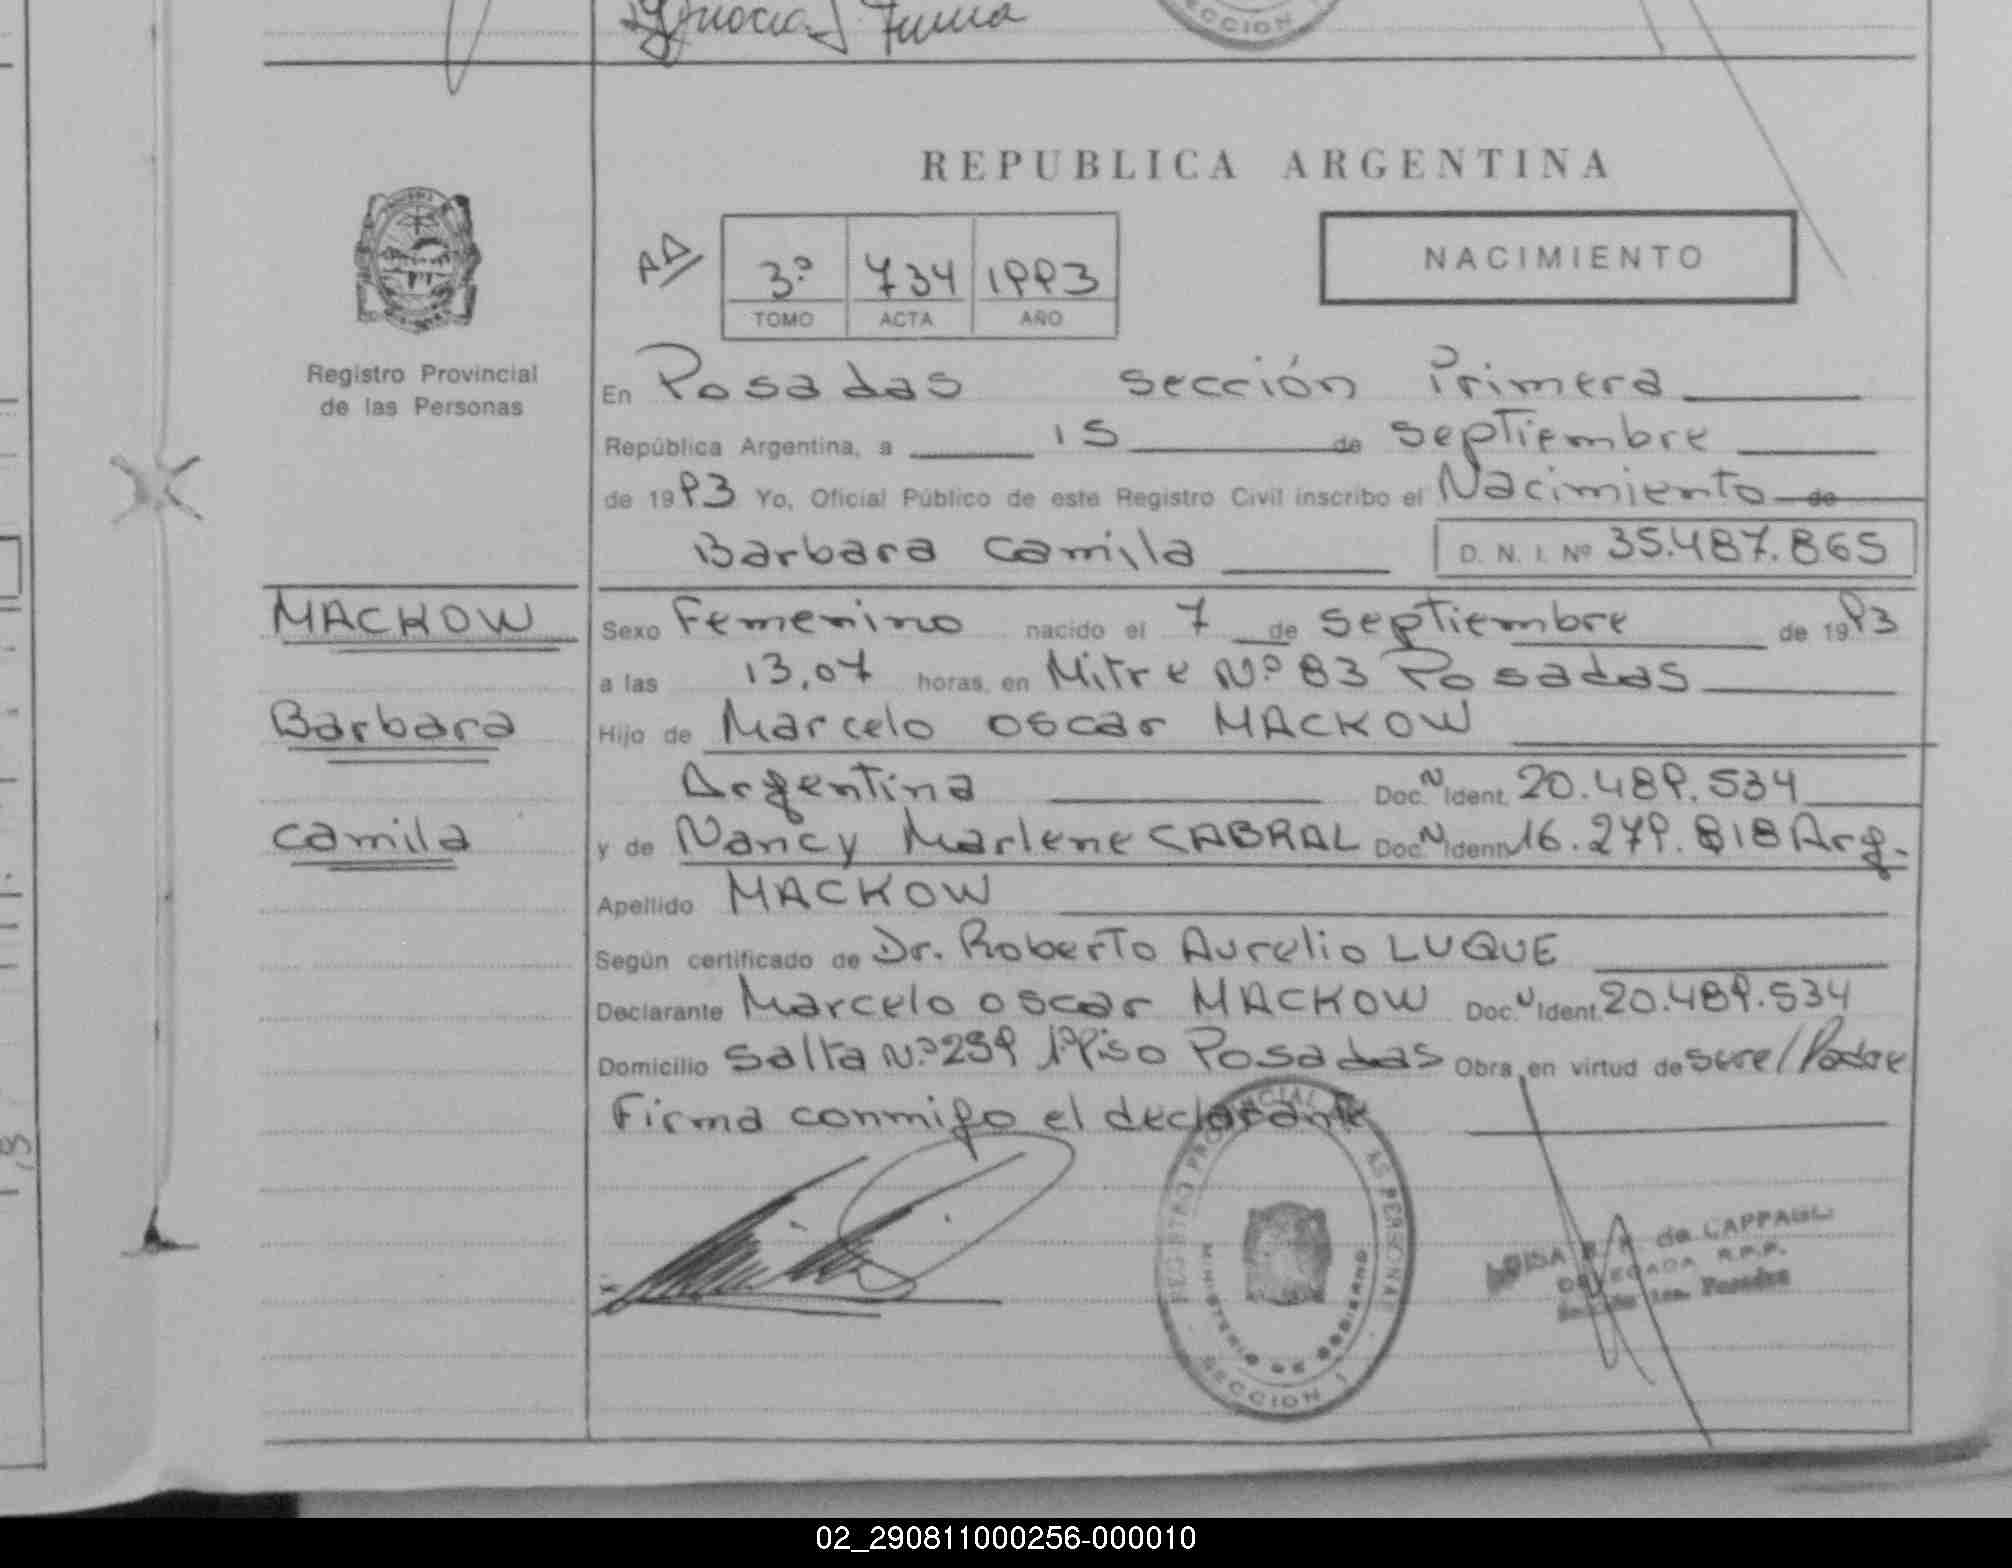 REPUBLICA ARGENTINA
3º 734 1993
TOMO ACTA AÑO
NACIMIENTO
Registro Provincial
de las Personas
En Posadas sección Primera
República Argentina, a 15 de septiembre
de 1993 Yo, Oficial Público de este Registro Civil inscribo el Nacimiento de
Barbara Camila D. N. I. Nº 35.487.865
MACKOW
Barbara
Camila
Sexo Femenino nacido el 7 de septiembre de 1993
a las 13,07 horas, en Mitre Nº 83 Posadas
Hijo de Marcelo Oscar MACKOW
Argentina Doc. N Ident. 20.489.534
y de Nancy Marlene CABRAL Doc. N Ident. 16.279.818 Arg.
Apellido MACKOW
Según certificado de Dr. Roberto Aurelio LUQUE
Declarante Marcelo Oscar MACKOW Doc. N Ident. 20.489.534
Domicilio Salta Nº 259 1º Piso Posadas Obra en virtud de ser el Padre
Firma conmigo el declarante
REGISTRO PROVINCIAL DE LAS PERSONAS
MINISTERIO DE GOBIERNO
SECCION 1
de CAPPAGLI
DELEGADA R.P.P.
Posadas
02_290811000256-000010